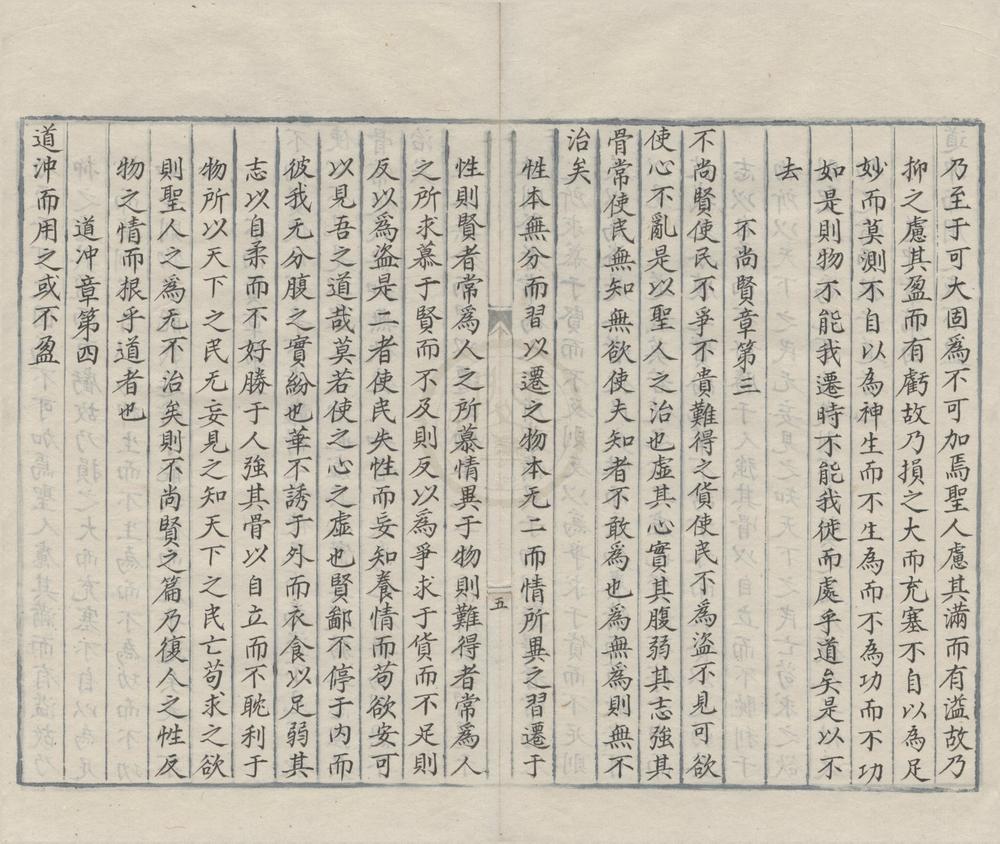 乃至于可大固為不可加焉聖人慮其滿而有溢故乃
抑之慮其盈而有虧故乃損之大而充塞不自以為足
妙而莫測不自以為神生而不生為而不為功而不功
如是則物不能我遷時不能我徙而處乎道矣是以不
去
不尚賢章第三
不尚賢使民不爭不貴難得之貨使民不為盜不見可欲
使心不亂是以聖人之治也虛其心實其腹弱其志強其
骨常使民無知無欲使夫知者不敢為也為無為則無不
治矣
性本無分而習以遷之物本无二而情所異之習遷于
五
性則賢者常為人之所慕情異于物則難得者常為人
之所求慕于賢而不及則反以為爭求于貨而不足則
反以為盜是二者使民失性而妄知養情而苟欲安可
以見吾之道哉莫若使之心之虛也賢鄙不停于內而
彼我无分腹之實紛也華不誘于外而衣食以足弱其
志以自柔而不好勝于人強其骨以自立而不耽利于
物所以天下之民无妄見之知天下之民亡苟求之欲
則聖人之為无不治矣則不尚賢之篇乃復人之性反
物之情而根乎道者也
道沖章第四
道沖而用之或不盈